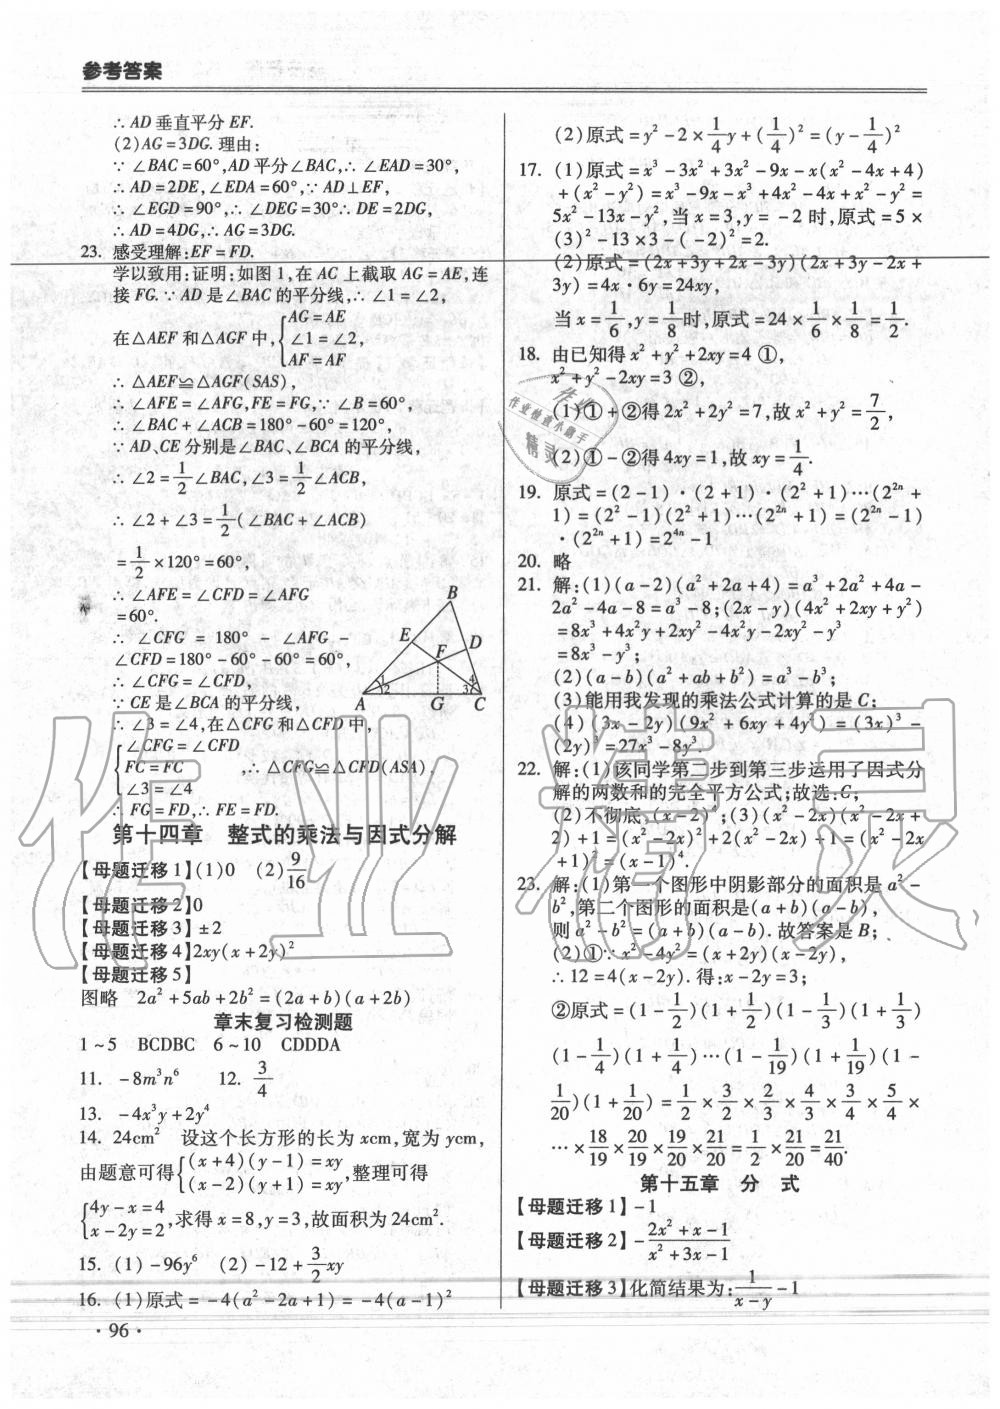 参考答案
∴AD垂直平分EF.
(2)AG=3DG.理由:
∵∠BAC=60°,AD平分∠BAC,∴∠EAD=30°,
∴AD=2DE,∠EDA=60°,∵AD⊥EF,
∴∠EGD=90°,∴∠DEG=30°∴DE=2DG,
∴AD=4DG,∴AG=3DG.
23. 感受理解:EF=FD.
学以致用:证明:如图1,在AC上截取AG=AE,连
接FG.∵AD是∠BAC的平分线,∴∠1=∠2,
在△AEF和△AGF中,{AG=AE
∠1=∠2,
AF=AF
∴△AEF≌△AGF(SAS),
∴∠AFE=∠AFG,FE=FG,∵∠B=60°,
∴∠BAC+∠ACB=180°-60°=120°,
∵AD、CE分别是∠BAC、∠BCA的平分线,
∴∠2=1/2∠BAC,∠3=1/2∠ACB,
∴∠2+∠3=1/2(∠BAC+∠ACB)
=1/2×120°=60°,
∴∠AFE=∠CFD=∠AFG
=60°.
∴∠CFG=180°-∠AFG-
∠CFD=180°-60°-60°=60°,
∴∠CFG=∠CFD,
∵CE是∠BCA的平分线,
∴∠3=∠4,在△CFG和△CFD中,
{∠CFG=∠CFD
FC=FC ,∴△CFG≌△CFD(ASA).
∠3=∠4
∴FG=FD,∴FE=FD.
B
E
D
F
1
2
4
3
A
G
C
第十四章 整式的乘法与因式分解
【母题迁移1】(1)0 (2)9/16
【母题迁移2】0
【母题迁移3】±2
【母题迁移4】2xy(x+2y)²
【母题迁移5】
图略 2a²+5ab+2b²=(2a+b)(a+2b)
章末复习检测题
1~5 BCDBC 6~10 CDDDA
11. -8m³n⁶ 12. 3/4
13. -4x³y+2y⁴
14. 24cm² 设这个长方形的长为xcm,宽为ycm,
由题意可得{(x+4)(y-1)=xy
(x-2)(y+1)=xy,整理可得
{4y-x=4
x-2y=2,求得x=8,y=3,故面积为24cm².
15. (1)-96y⁶ (2)-12+3/2xy
16. (1)原式=-4(a²-2a+1)=-4(a-1)²
·96·
(2)原式=y²-2×1/4y+(1/4)²=(y-1/4)²
17. (1)原式=x³-3x²+3x²-9x-x(x²-4x+4)
+(x²-y²)=x³-9x-x³+4x²-4x+x²-y²=
5x²-13x-y²,当x=3,y=-2时,原式=5×
(3)²-13×3-(-2)²=2.
(2)原式=(2x+3y+2x-3y)(2x+3y-2x+
3y)=4x·6y=24xy,
当x=1/6,y=1/8时,原式=24×1/6×1/8=1/2.
18. 由已知得x²+y²+2xy=4①,
x²+y²-2xy=3②,
(1)①+②得2x²+2y²=7,故x²+y²=7/2,
(2)①-②得4xy=1,故xy=1/4.
19. 原式=(2-1)·(2+1)·(2²+1)…(2²ⁿ+
1)=(2²-1)(2²+1)…(2²ⁿ+1)=(2²ⁿ-1)
·(2²ⁿ+1)=2⁴ⁿ-1
20. 略
21. 解:(1)(a-2)(a²+2a+4)=a³+2a²+4a-
2a²-4a-8=a³-8;(2x-y)(4x²+2xy+y²)
=8x³+4x²y+2xy²-4x²y-2xy²-y³
=8x³-y³;
(2)(a-b)(a²+ab+b²)=a³-b³;
(3)能用我发现的乘法公式计算的是C;
(4)(3x-2y)(9x²+6xy+4y²)=(3x)³-
(2y)³=27x³-8y³.
22. 解:(1)该同学第二步到第三步运用了因式分
解的两数和的完全平方公式;故选:C;
(2)不彻底,(x-2)⁴;(3)(x²-2x)(x²-2x+
2)+1=(x²-2x)²+2(x²-2x)+1=(x²-2x
+1)²=(x-1)⁴.
23. 解:(1)第一个图形中阴影部分的面积是a²-
b²,第二个图形的面积是(a+b)(a-b),
则a²-b²=(a+b)(a-b).故答案是B;
(2)①∵x²-4y²=(x+2y)(x-2y),
∴12=4(x-2y).得:x-2y=3;
②原式=(1-1/2)(1+1/2)(1-1/3)(1+1/3)
(1-1/4)(1+1/4)…(1-1/19)(1+1/19)(1-
1/20)(1+1/20)=1/2×3/2×2/3×4/3×3/4×5/4×
…×18/19×20/19×19/20×21/20=1/2×21/20=21/40.
第十五章 分 式
【母题迁移1】-1
【母题迁移2】-(2x²+x-1)/(x²+3x-1)
【母题迁移3】化简结果为:1/(x-y)-1
作业
作业检查小助手
精灵
作业精灵